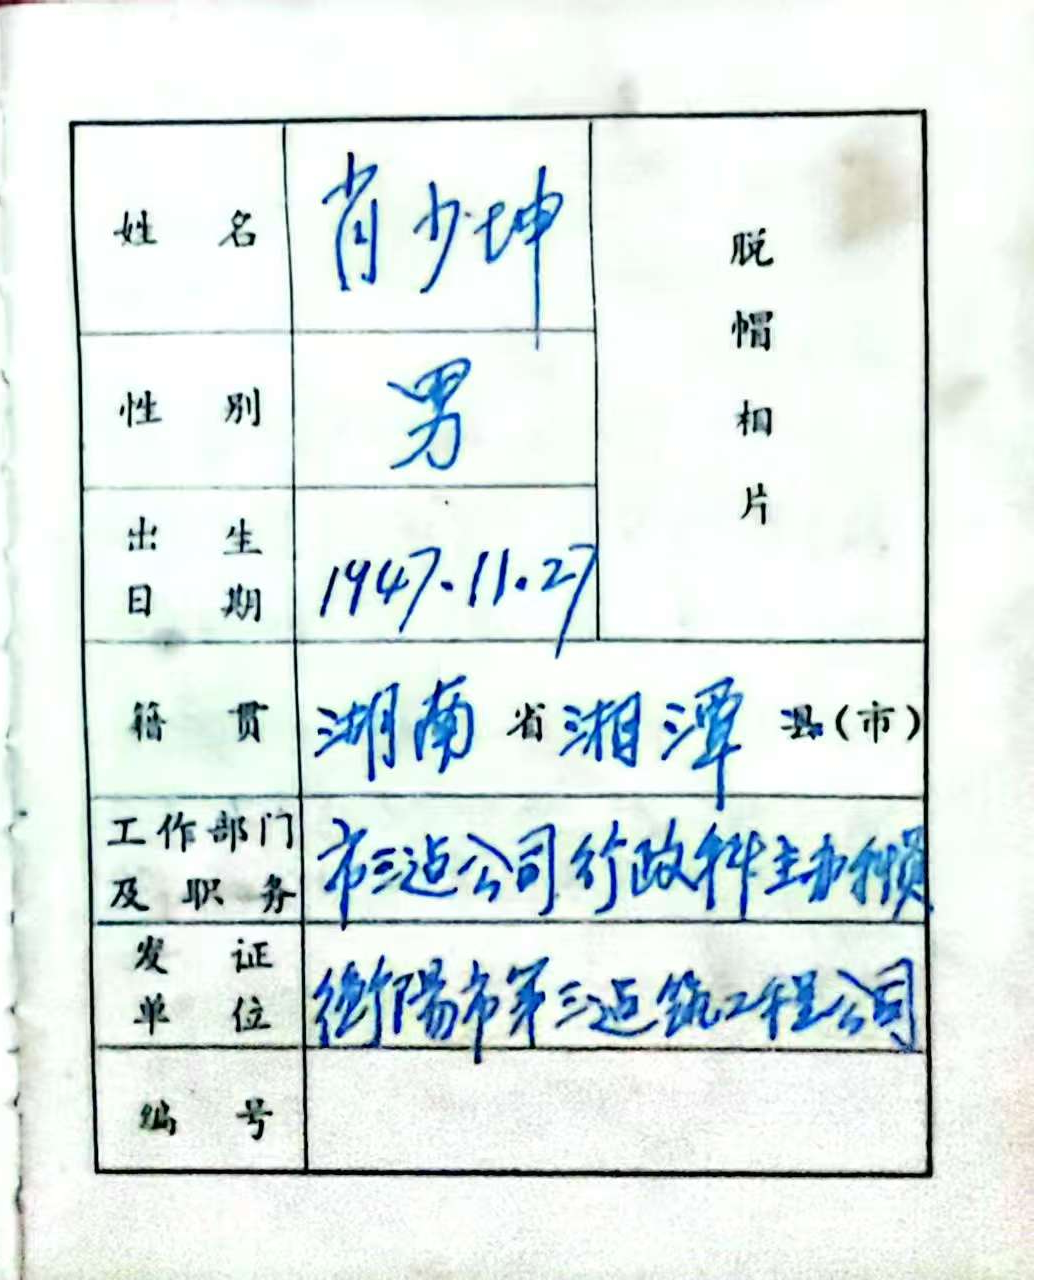 姓名 肖少坤
脱帽相片
性别 男
出生日期 1947.11.27
籍贯 湖南省湘潭县(市)
工作部门及职务 市三建公司行政科主办科员
发证单位 衡阳市第三建筑工程公司
编号